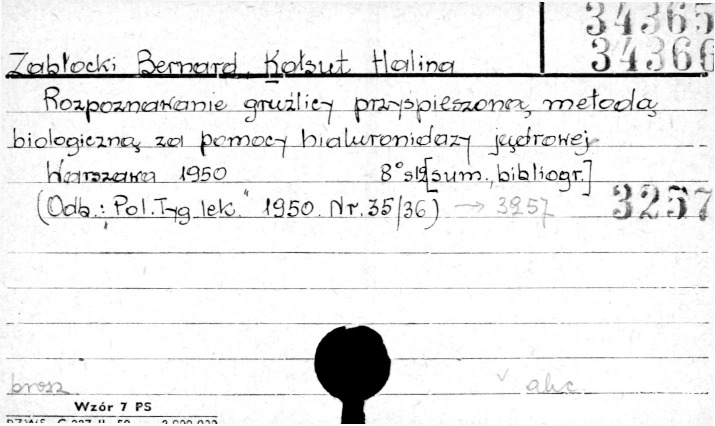 34365
34366
Zabłocki Bernard, Kołsut Halina
Rozpoznawanie gruźlicy przyspieszoną metodą
biologiczną za pomocy hialuronidazy jądrowej
Warszawa 1950 8° [sum., bibliogr.]
(Odb.: "Pol. Tyg. lek." 1950. Nr. 35/36) → 3257
3257
brosz
abc.
Wzór 7 PS